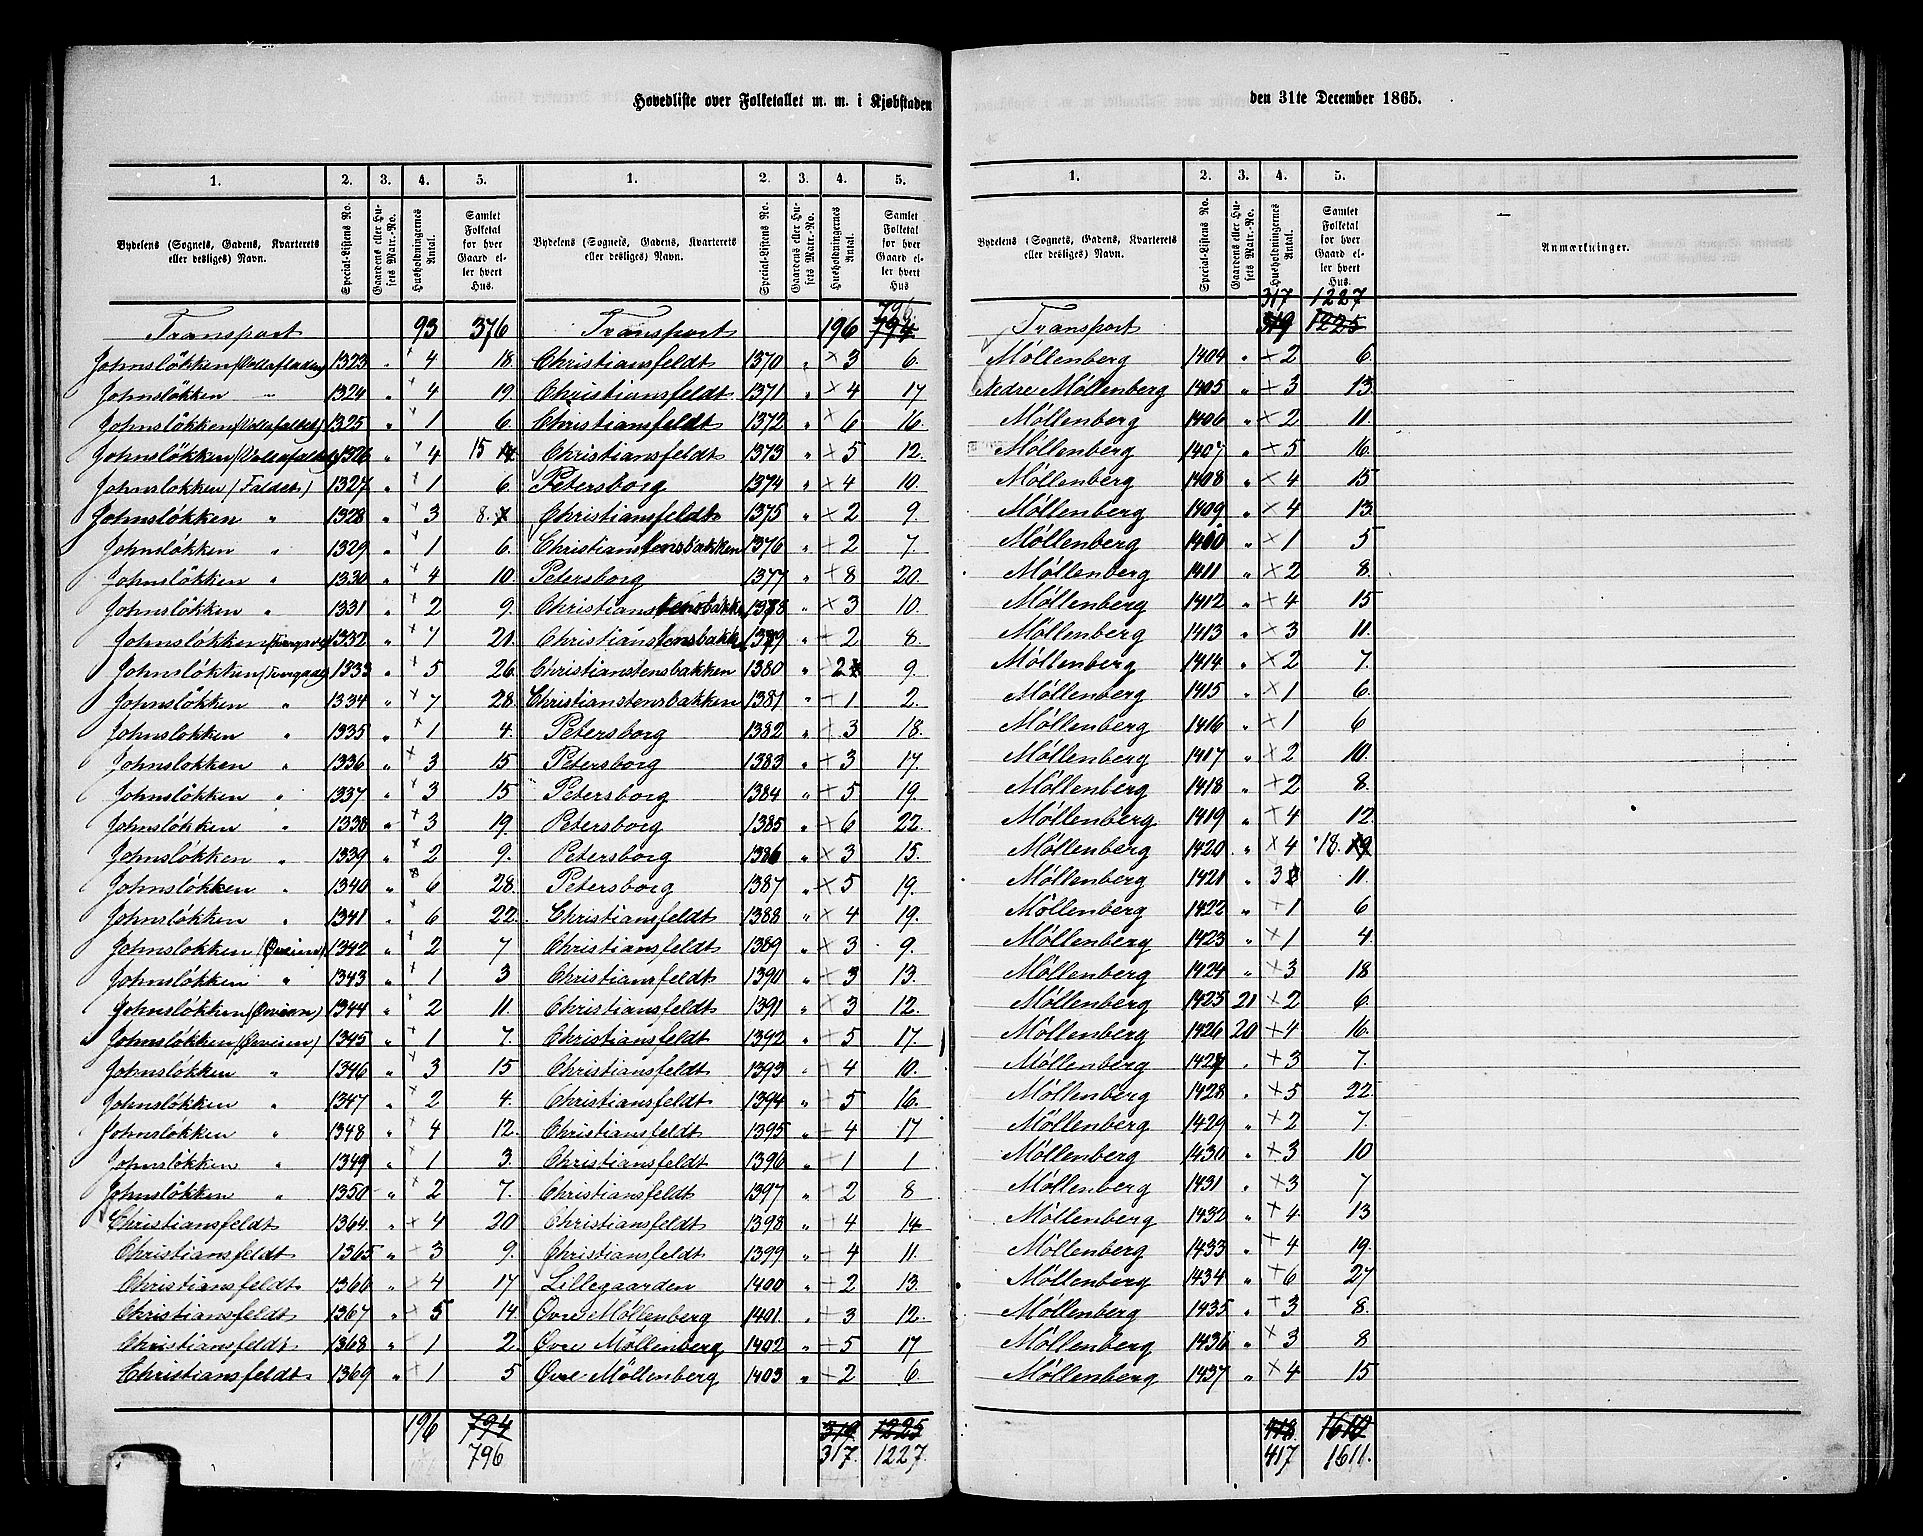 Hovedliste over Folketallet m. m. i Kjøbstaden den 31te December 1865.
1. 2. 3. 4. 5. 1. 2. 3. 4. 5.
Bydelens (Sognets, Gadens, Kvarterets eller desliges) Navn. Special-Listens No. Gaardens eller Husets Matr.-No. Husholdningernes Antal. Samlet Folketal for hver Gaard eller hvert Hus. Bydelens (Sognets, Gadens, Kvarterets eller desliges) Navn. Special-Listens No. Gaardens eller Husets Matr.-No. Husholdningernes Antal. Samlet Folketal for hver Gaard eller hvert Hus
Transport 93 376 Transport 196 794 796
Johnsløkken 1323 " × 4 18. Christiansfeldt 1370 " × 3 6.
Johnsløkken " 1324 " × 4 19. Christiansfeldt 1371 " × 4 17
Johnsløkken 1325 " × 1 6. Christiansfeldt 1372 " × 6 16.
Johnsløkken 1326 " × 4 15 Christiansfeldt 1373 " × 5 12.
Johnsløkken (Faldet) 1327 " × 1 6 Petersborg 1374 " × 4 10.
Johnsløkken " 1328 " × 3 8. Christiansfeldt 1375 " × 2 9.
Johnsløkken " 1329 " × 1 6. Christianstensbakken 1376 " × 2 7.
Johnsløkken " 1330 " × 4 10. Petersborg 1377 " × 8 20.
Johnsløkken " 1331 " × 2 9. Christianstensbakken 1378 " × 3 10.
Johnsløkken 1332 " × 7 21. Christianstensbakken 1379 " × 2 8.
Johnsløkken 1333 " × 5 26. Christianstensbakken 1380 " × 2 9.
Johnsløkken " 1334 " × 7 28. Christianstensbakken 1381 " × 1 2.
Johnsløkken " 1335 " × 1 4. Petersborg 1382 " × 3 18.
Johnsløkken " 1336 " × 3 15 Petersborg 1383 " × 3 17.
Johnsløkken " 1337 " × 3 15 Petersborg 1384 " × 5 19.
Johnsløkken " 1338 " × 3 19. Petersborg 1385 " × 6 22.
Johnsløkken " 1339 " × 2 9. Petersborg 1386 " × 3 15.
Johnsløkken " 1340 " × 6 28. Petersborg 1387 " × 5 19.
Johnsløkken " 1341 " × 6 22. Christiansfeldt 1388 " × 4 19.
Johnsløkken 1342 " × 2 7 Christiansfeldt 1389 " × 3 9.
Johnsløkken " 1343 " × 1 3 Christiansfeldt 1390 " × 3 13.
Johnsløkken 1344 " × 2 11. Christiansfeldt 1391 " × 3 12.
Johnsløkken 1345 " × 1 7. Christiansfeldt 1392 " × 5 17.
Johnsløkken " 1346 " × 3 15 Christiansfeldt 1393 " × 4 10.
Johnsløkken " 1347 " × 2 4. Christiansfeldt 1394 " × 5 16.
Johnsløkken " 1348 " × 4 12. Christiansfeldt 1395 " × 4 17
Johnsløkken " 1349 " × 1 3. Christiansfeldt 1396 " × 1 1
Johnsløkken " 1350 " × 2 7. Christiansfeldt 1397 " × 2 8
Christiansfeldt 1364 " × 4 20 Christiansfeldt 1398 " × 4 14
Christiansfeldt 1365 " × 3 9. Christiansfeldt 1399 " × 4 11.
Christiansfeldt 1366 " × 4 17 Lillegaarden 1400 " × 2 13.
Christiansfeldt 1367 " × 5 14 Øvre Möllenberg 1401 " × 3 12.
Christiansfeldt 1368 " × 1 2. Øvre Möllenberg 1402 " × 5 17
Christiansfeldt 1369 " × 1 5 Øvre Möllenberg 1403 " × 2 6
196 794 319 1225
796 317. 1227.
1. 2. 3. 4. 5.
Bydelens (Sognets, Gadens, Kvarterets eller desliges) Navn. Special-Listens No. Gaardens eller Husets Matr.-No. Husholdningernes Antal. Samlet Folketal for hver Gaard eller hvert Hus. Anmærkninger.
317 1227
Transport 319 1225
Möllenberg 1404 " × 2 6.
Nedre Möllenberg 1405 " × 3 13.
Möllenberg 1406 " × 2 11.
Möllenberg 1407 " × 5 16.
Möllenberg 1408 " × 4 15
Möllenberg 1409 " × 4 13.
Möllenberg 1410 " × 1 5
Möllenberg 1411 " × 2 8.
Möllenberg 1412 " × 4 15
Möllenberg 1413 " × 3 11.
Möllenberg 1414 " × 2 7.
Möllenberg 1415 " × 1 6.
Möllenberg 1416 " × 1 6
Möllenberg 1417 " × 2 10.
Möllenberg 1418 " × 2 8.
Möllenberg 1419 " × 4 12.
Möllenberg 1420 " × 4 18. 19
Möllenberg 1421 " 3 11.
Möllenberg 1422 " × 1 6
Möllenberg 1423 " × 1 4.
Möllenberg 1424 " × 3 18
Möllenberg 1425 21 × 2 6.
Möllenberg 1426 20 × 4 16.
Möllenberg 1427 " × 3 7.
Möllenberg 1428 " × 5 22.
Möllenberg 1429 " × 2 7.
Möllenberg 1430 " × 3 10
Möllenberg 1431 " × 3 7
Möllenberg 1432 " × 4 13
Möllenberg 1433 " × 4 19.
Möllenberg 1434 " × 6 27
Möllenberg 1435 " × 3 8.
Möllenberg 1436 " × 3 8
Möllenberg 1437 " × 4 15
418. 1610
417 1611.